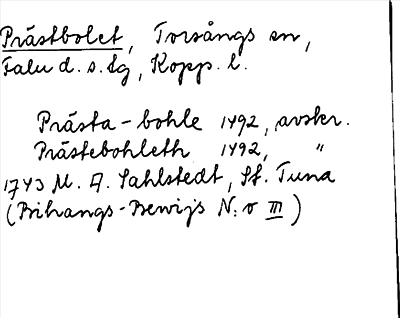 Prästbolet, Torsångs sn,
Falu d. s. lg, Kopp. l.
Prästa-bohle 1492, avskr.
Prästebohleth 1492, "
1743 M. A. Sahlstedt, St. Tuna
(Bihangs-Bewijs N:o III)